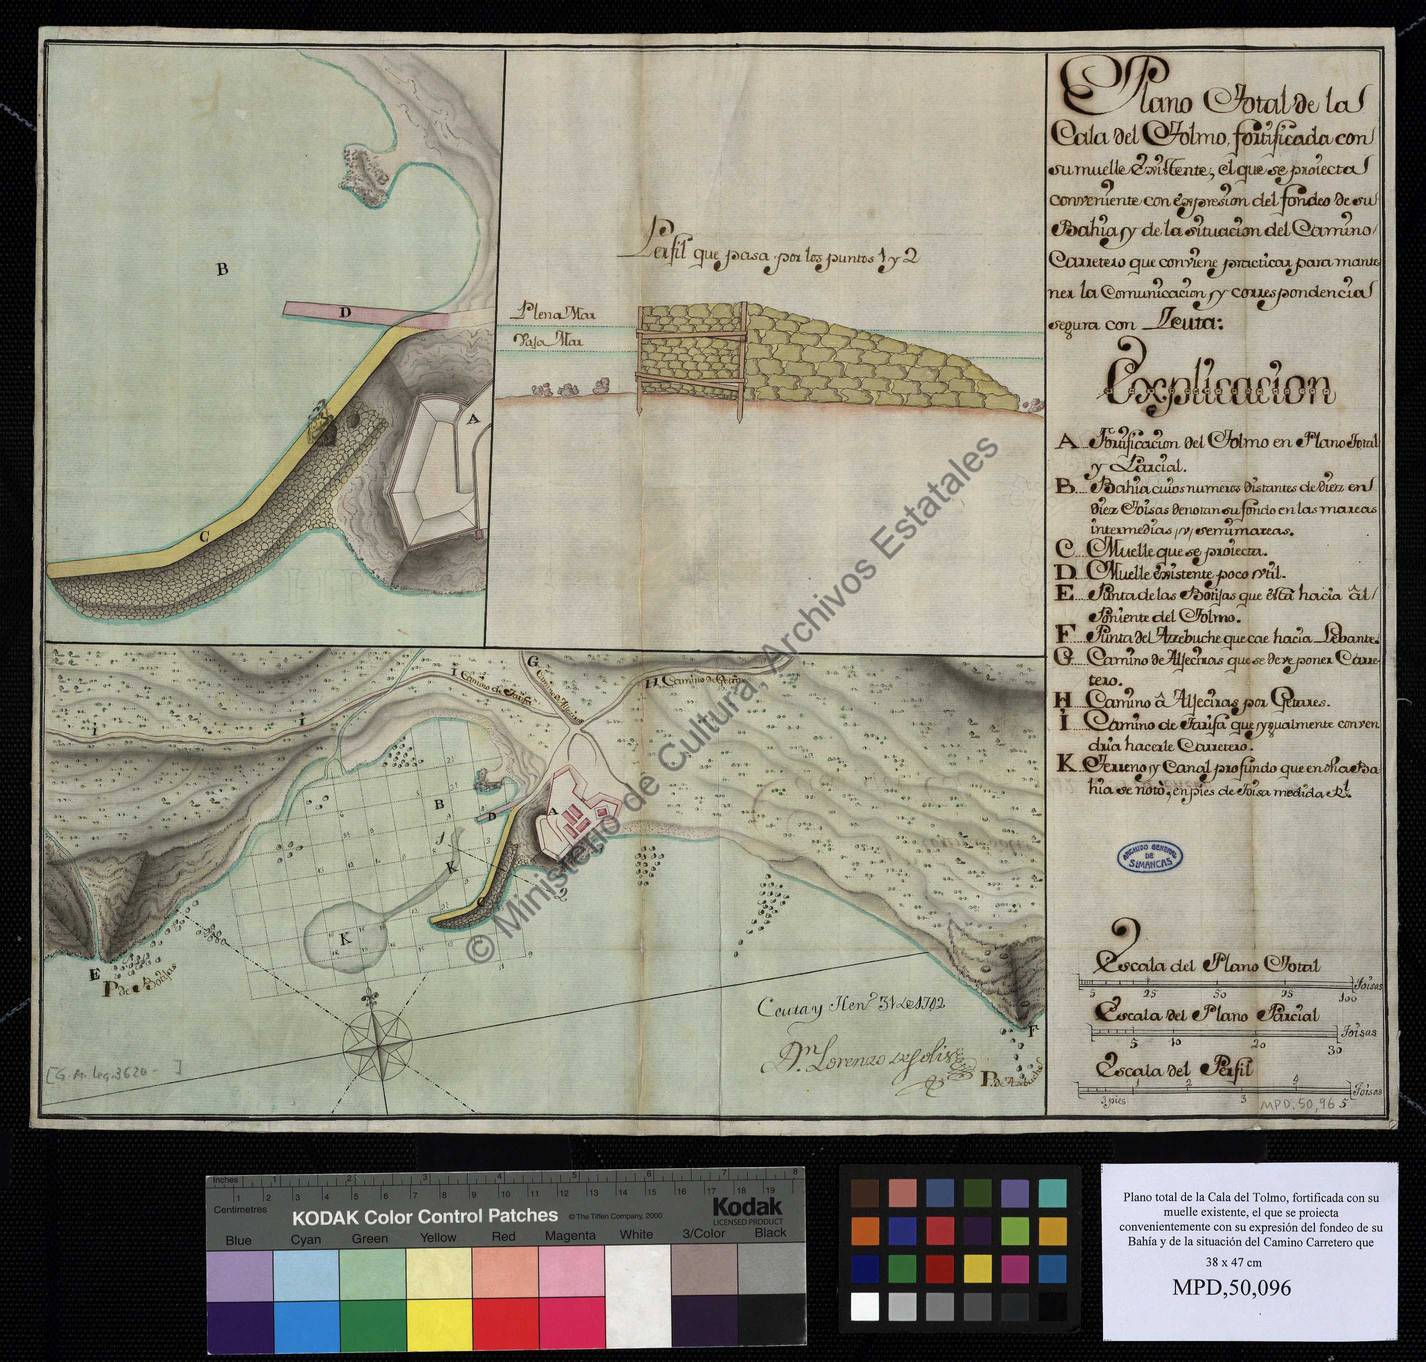 Plano Total de la
Cala del Tolmo, fortificada con
su muelle existente; el que se proiecta
conveniente con expresion del fondeo de su
Bahia, y de la situacion del Camino
Carretero que conviene practicar para mante
ner la Comunicacion, y correspondencia
segura con Ceuta:
Explicacion
A Fortificacion del Tolmo en Plano Total
y Parcial.
B Bahia cuios numeros distantes de diez en
diez Toisas denotan su fondo en las mareas
intermedias, y semimareas.
C Muelle que se proiecta.
D Muelle existente poco util.
E Punta de las Botijas que està hacia âl
Poniente del Tolmo.
F Punta del Azebuche que cae hacia Lebante.
G Camino de Aljeciras que se deve poner Carre-
tero.
H Camino â Aljeciras por Getares.
I Camino de Tarifa que ygualmente conven
dria hacerle Carretero.
K Terreno y Canal profundo que en dha Ba
hia se notó, en pies de Toisa medida Rl.
ARCHIVO GENERAL
DE
SIMANCAS
Escala del Plano Total
5 25 50 75 100 Toisas
Escala del Plano Parcial
5 10 20 30 Toisas
Escala del Perfil
3 pies 1 2 3 4 5 Toisas
MPD. 50, 96
B
D
C
A
Perfil que pasa por los puntos 1 y 2
Plena Mar
Vaja Mar
I
I
I Camino de Tarifa
G
Camino de Aljeciras
H. Camino de Getares
B
D
A
K
C
K
1
2
E
P. de Botijas
F
P. de Azebuche
Ceuta y Henº 31 de 1742
Dn. Lorenzo de Solis
[G. A. leg. 3620 - ]
© Ministerio de Cultura, Archivos Estatales
Inches 1 2 3 4 5 6 7 8
Centimetres 1 2 3 4 5 6 7 8 9 10 11 12 13 14 15 16 17 18 19
KODAK Color Control Patches © The Tiffen Company, 2000
Kodak
LICENSED PRODUCT
Blue Cyan Green Yellow Red Magenta White 3/Color Black
Plano total de la Cala del Tolmo, fortificada con su
muelle existente, el que se proiecta
convenientemente con su expresión del fondeo de su
Bahía y de la situación del Camino Carretero que
38 x 47 cm
MPD,50,096